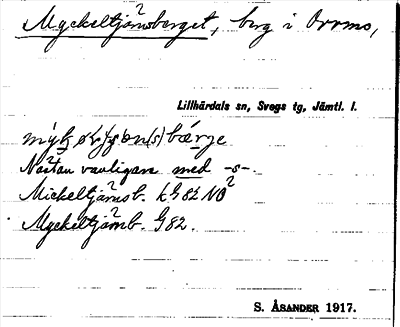 Myckeltjärnsberget, berg i Orrmo,
Lillhärdals sn, Svegs tg, Jämtl. l.
Nästan vanligare med -s-.
Mickeltjärnsb. k G 82 NO
Myckeltjärnb. G 82.
S. ÅSANDER 1917.